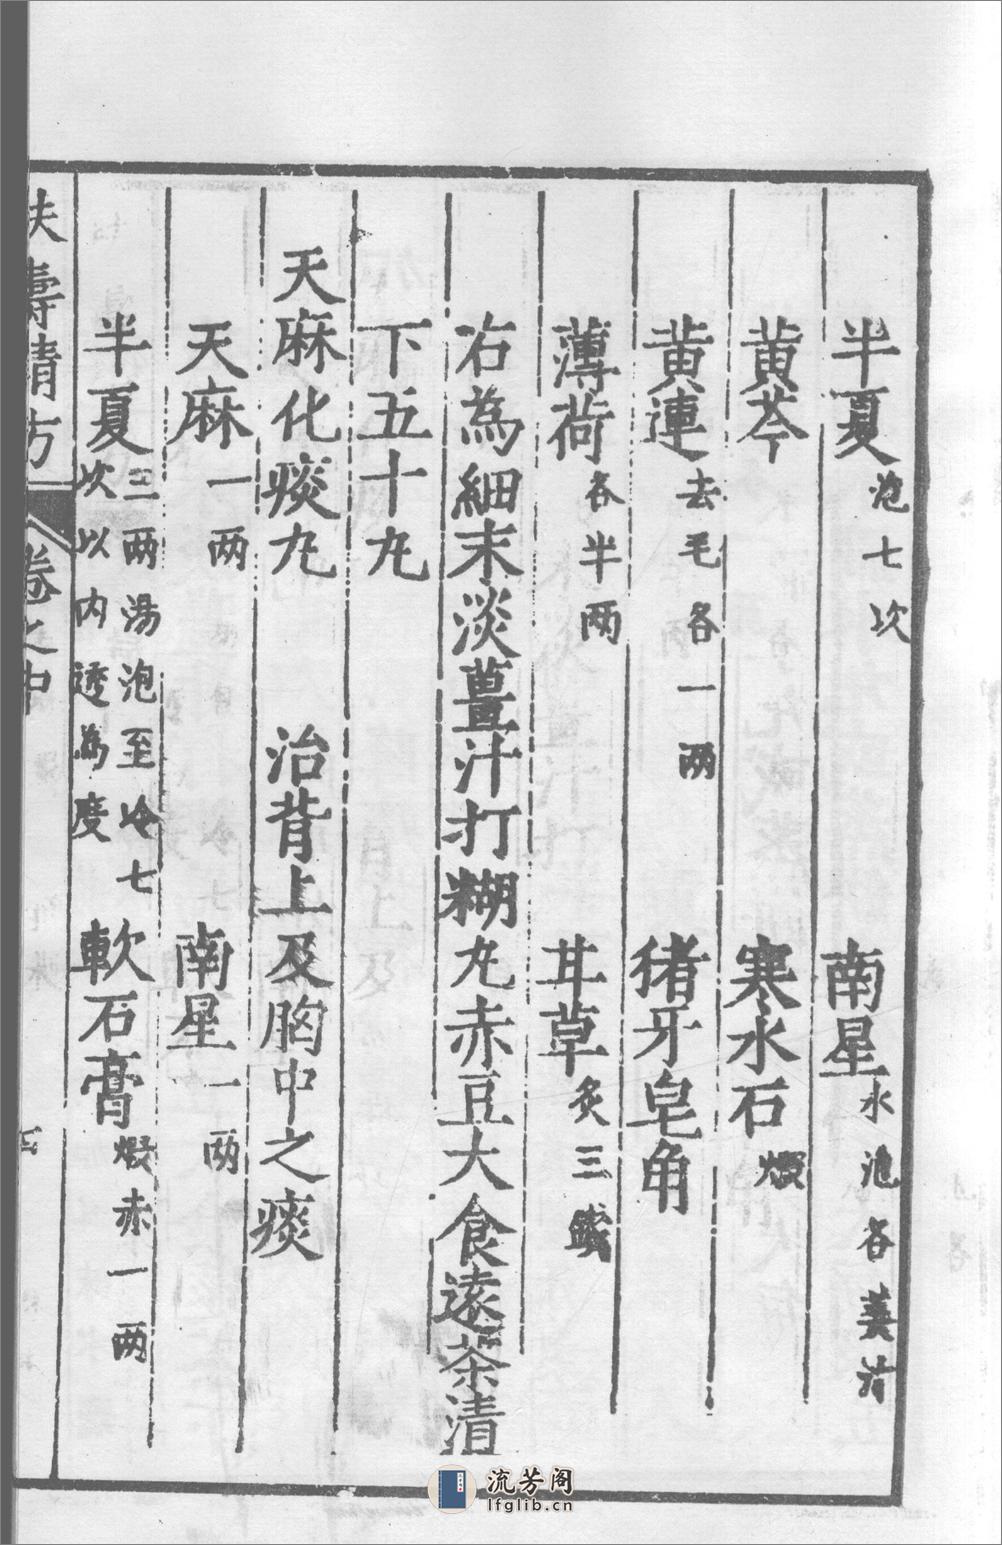 半夏泡七次 南星水泡各姜
黄芩 寒水石煅
黄連去毛各一两 猪牙皂角
薄荷各半两 甘草炙三錢
右為細末淡薑汁打糊丸赤豆大食遠茶清
下五十丸
天麻化痰丸 治背上及胸中之痰
天麻一两 南星一两
半夏三两湯泡至冷七次以内透為度 軟石膏煅赤一两
扶壽精方 卷之中
流芳阁
lfglib.cn